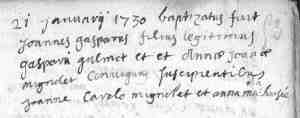 21 januarij 1730 baptizatus fuit
joannes gasparus filius legitimus
gasparii gulmot et et Annæ joannæ
mignolet Conjugum Suscipientibus
joanne Carolo mignolet et anna